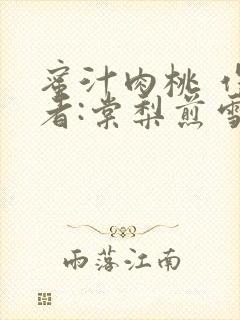 蜜汁肉桃
者:棠梨煎雪
雨落江南